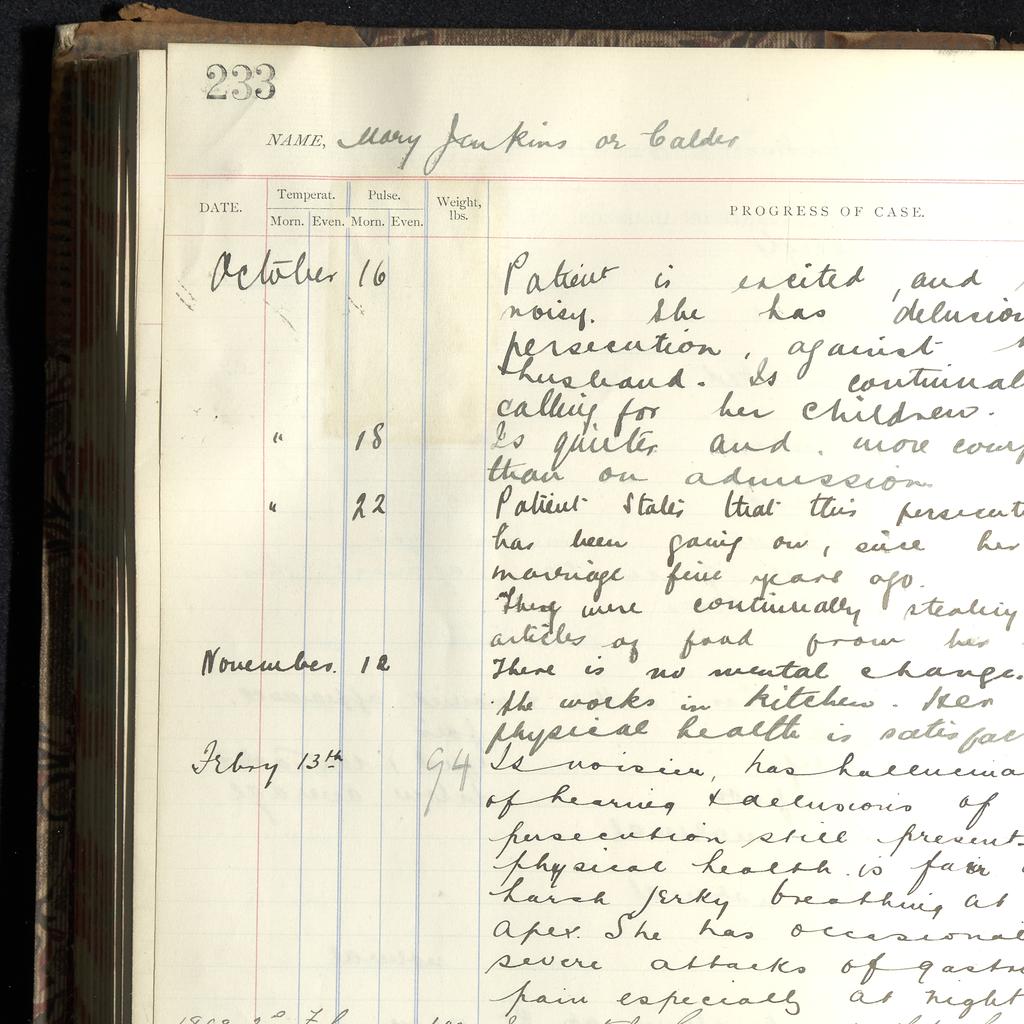 233
NAME, Mary Jenkins or Calder
DATE. Temperat. Pulse. Weight, lbs. PROGRESS OF CASE.
Morn. Even. Morn. Even.
October 16 Patient is excited, and
noisy. She has delusion
persecution, against
husband. Is continual
calling for her children.
" 18 Is quieter and more comp
than on admission
" 22 Patient States that this persecut
has been going on, since her
marriage five years ago.
They were continually stealing
articles of food from her
November. 12 There is no mental change.
She works in kitchen. Her
physical health is satisfac
Febry 13th 94 Is noisier, has hallucina
of hearing & delusions of
persecution still present.
physical health is fair
harsh jerky breathing at
apex. She has occasional
severe attacks of gastr
pain especially at night